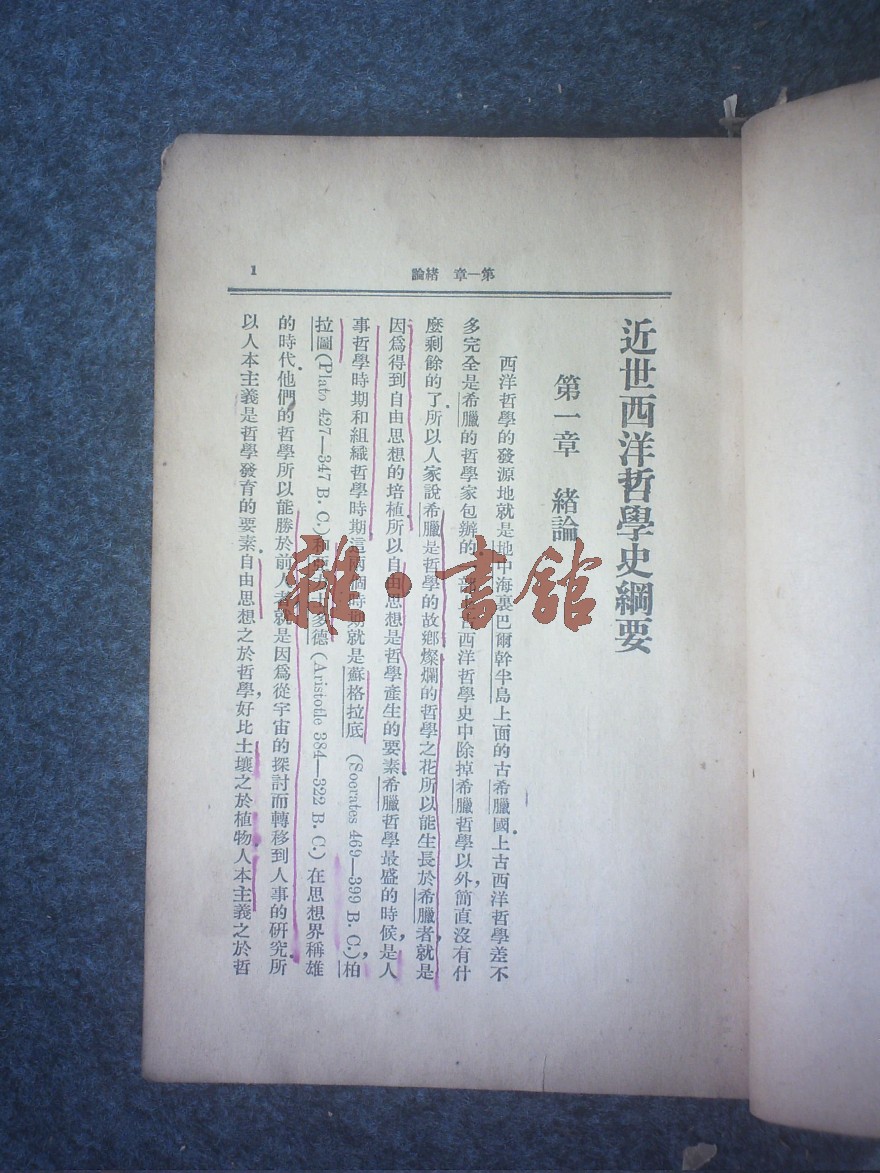 第一章 緒論
1
近世西洋哲學史綱要
第一章 緒論
西洋哲學的發源地就是地中海裏巴爾幹半島上面的古希臘國.上古西洋哲學差不
多完全是希臘的哲學家包辦的.部西洋哲學史中除掉希臘哲學以外,簡直沒有什
麼剩餘的了.所以人家說希臘是哲學的故鄉.燦爛的哲學之花所以能生長於希臘者,就是
因爲得到自由思想的培植.所以自由思想是哲學產生的要素.希臘哲學最盛的時候,是人
事哲學時期和組織哲學時期.這兩個時期就是蘇格拉底 (Socrates 469—399 B. C.),柏
拉圖(Plato 427—347 B. C.)和多德 (Aristotle 384—322 B. C.) 在思想界稱雄
的時代.他們的哲學所以能勝於前人者,就是因爲從宇宙的探討而轉移到人事的研究.所
以人本主義是哲學發育的要素.自由思想之於哲學,好比土壤之於植物.人本主義之於哲
雜·書館